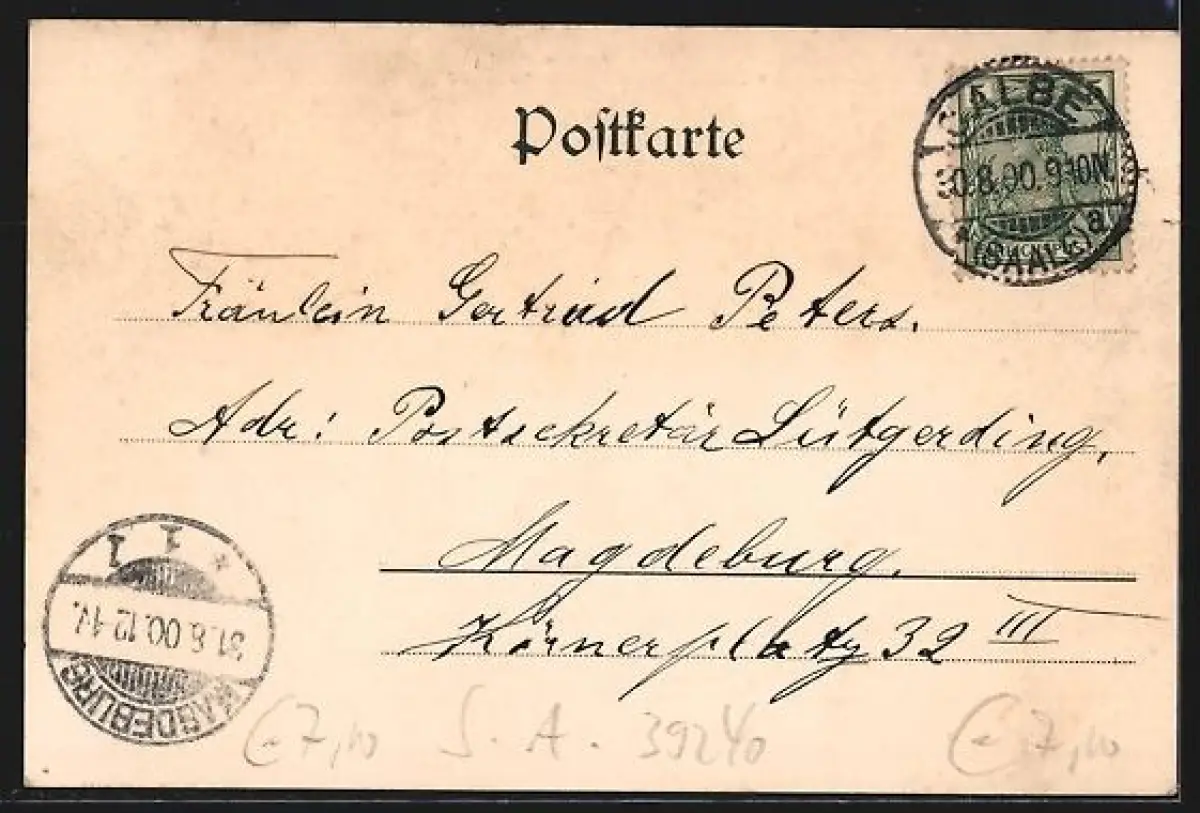 Postkarte
CALBE
30.8.00.9-10N.
*(SAALE)a
Fräulein Gertrud Peters.
Adr: Postsekretär Lütgerding,
Magdeburg.
Körnerplatz 32 III
* 1 1
31.8.00.12-1V.
MAGDEBURG
€ 7,10 S. A. 39240 € 7,10